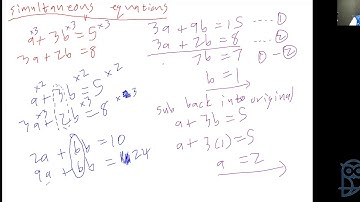 simultaneous equations
x3 x3 x3
a + 3b = 5
3a + 2b = 8
x2 x2 x2
a + 3b = 5
x3 x3 x3
3a + 2b = 8
2a + 6b = 10
9a + 6b = 24
3a + 9b = 15 ---- ①
3a + 2b = 8 ---- ②
7b = 7 ①-②
b = 1
sub back into original
a + 3b = 5
a + 3(1) = 5
a = 2